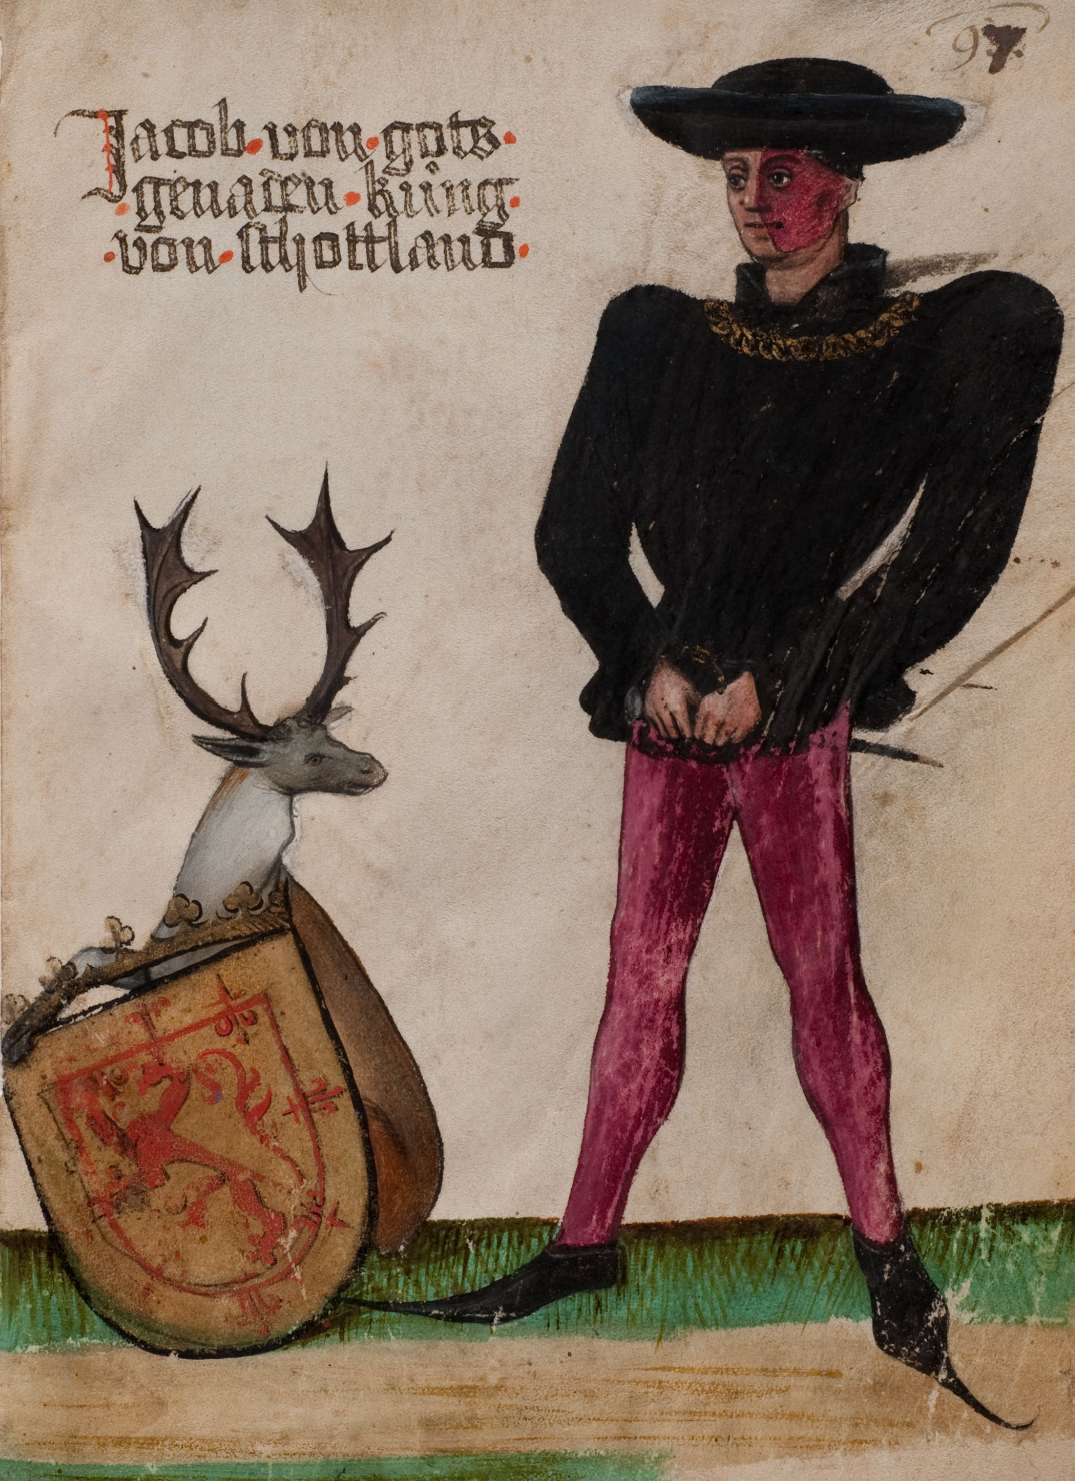 97
Jacob · von · gots ·
· genaden · küng ·
· von · schottland ·